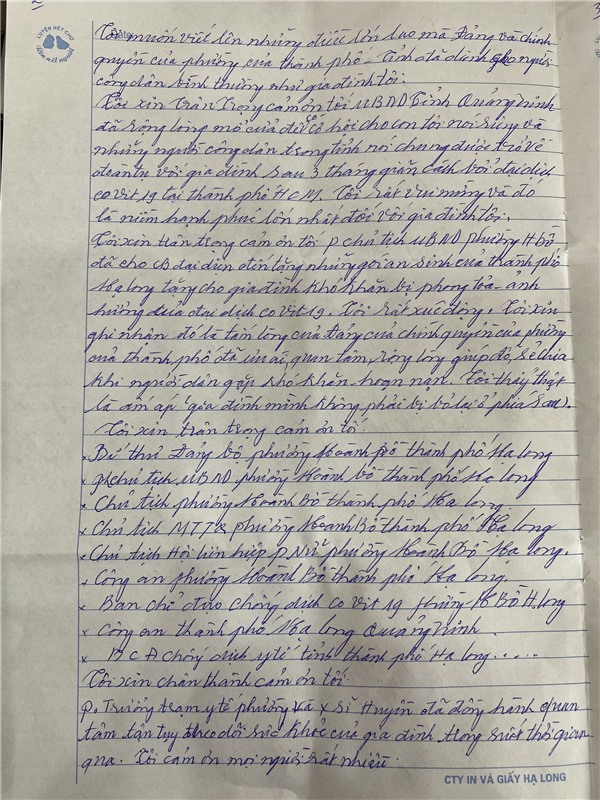 LUYỆN NÉT CHỮ
RÈN NẾT NGƯỜI
Tôi muốn viết lên những điều lớn lao mà Đảng và chính
quyền của phường của thành phố - Tỉnh đã dành cho người
công dân bình thường như gia đình tôi.
Tôi xin Trân Trọng cảm ơn tới UBND Tỉnh Quảng Ninh
đã rộng lòng mở cửa để cơ hội cho con tôi nói riêng và
những người công dân trong tỉnh nói chung được trở về
đoàn tụ với gia đình sau 3 tháng giãn cách với đại dịch
covit 19 tại thành phố HCM. Tôi rất vui mừng và đó
là niềm hạnh phúc lớn nhất đối với gia đình tôi.
Tôi xin trân trọng cảm ơn tới P chủ tịch UBND phường H Bồ
đã cho CB đại diện đến tặng những gói an sinh của thành phố
Hạ long tặng cho gia đình khó khăn bị phong tỏa - ảnh
hưởng của đại dịch covit 19. Tôi rất xúc động. Tôi xin
ghi nhận đó là tấm lòng của Đảng của chính quyền của phường
của thành phố đã ưu ái, quan tâm, rộng lòng giúp đỡ, sẻ chia
khi người dân gặp khó khăn hoạn nạn. Tôi thấy thật
là ấm áp (gia đình mình không phải bị bỏ lại ở phía sau).
Tôi xin trân trong cảm ơn tới
x Bí thư Đảng bộ phường Hoành Bồ thành phố Hạ long
x P chủ tịch UBND phường Hoành Bồ thành phố Hạ long
x Chủ tịch phường Hoành Bồ thành phố Hạ long
x Chủ tịch MTTQ phường Hoành Bồ thành phố Hạ long
x Chủ tịch Hội liên hiệp P Nữ phường Hoành Bồ Hạ long.
x Công an phường Hoành Bồ thành phố Hạ long.
x Ban chỉ đạo chống dịch covit 19 phường H Bồ H long
x Công an thành phố Hạ long Quảng Ninh.
x BCĐ chống dịch y tế tỉnh thành phố Hạ long.....
Tôi xin chân thành cảm ơn tới
P. Trưởng trạm y tế phường và x Sĩ Huyền đã đồng hành quan
tâm tận tụy theo dõi sức khỏe của gia đình trong suốt thời gian
qua. Tôi cảm ơn mọi người rất nhiều.
CTY IN VÀ GIẤY HẠ LONG